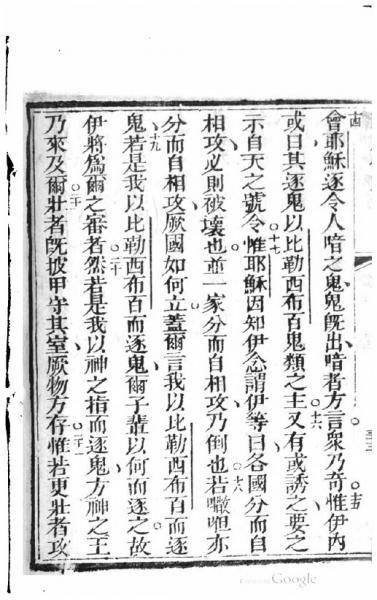 十四
會耶穌逐令人喑之鬼鬼既出喑者方言衆乃奇十五惟伊內
或曰其逐鬼以比勒西布百鬼類之主十六又有或誘之要之
示自天之號令十七惟耶穌因知伊念謂伊等曰各國分而自
相攻必則被壞也並一家分而自相攻乃倒也十八若呾亦
分而自相攻厥國如何立蓋爾言我以比勒西布百而逐
鬼十九若是我以比勒西布百而逐鬼爾子輩以何而逐之故
伊將爲爾之審者二十然若是我以神之指而逐鬼方神之王
乃來及爾二一壯者既披甲守其室厥物方存二二惟若更壯者攻
Google